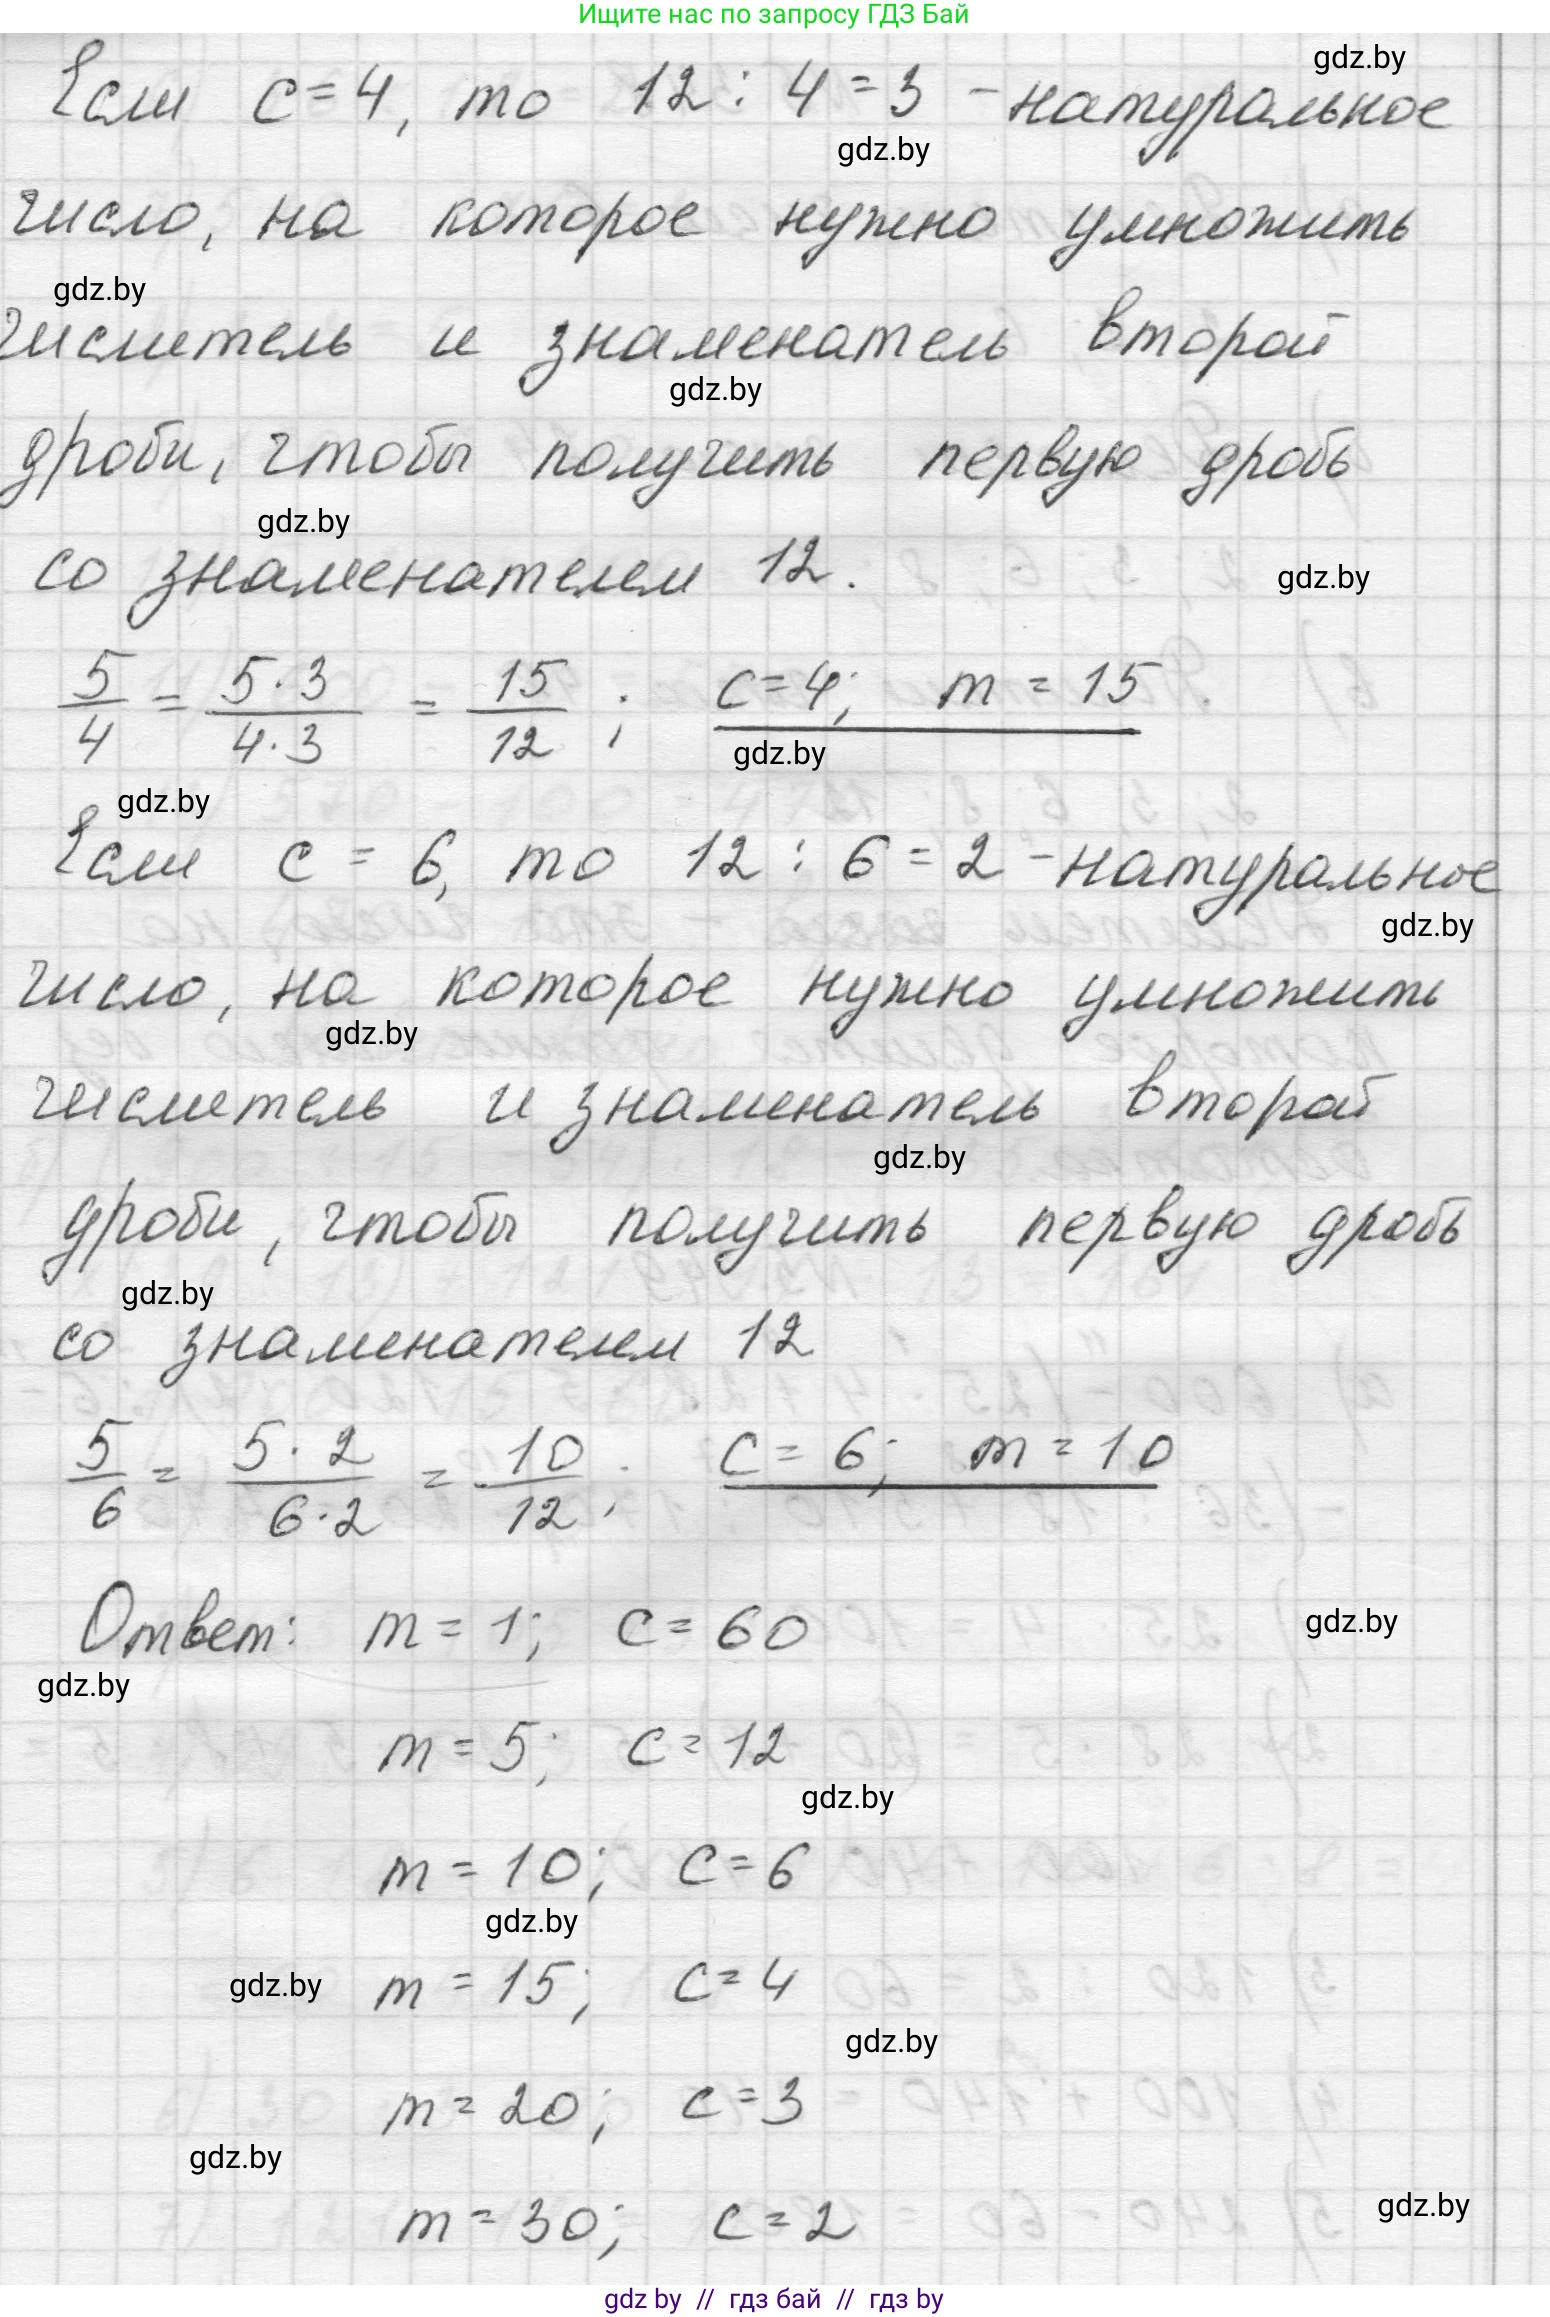 Ищите нас по запросу ГДЗ Бай
gdz.by
Если c=4, то 12 : 4 = 3 - натуральное
gdz.by
число, на которое нужно умножить
gdz.by
числитель и знаменатель второй
gdz.by
дроби, чтобы получить первую дробь
gdz.by
со знаменателем 12.
gdz.by
5/4 = 5·3/4·3 = 15/12 ; c=4; m = 15
gdz.by
gdz.by
Если c = 6, то 12 : 6 = 2 - натуральное
gdz.by
число, на которое нужно умножить
gdz.by
числитель и знаменатель второй
gdz.by
дроби, чтобы получить первую дробь
gdz.by
со знаменателем 12
5/6 = 5·2/6·2 = 10/12 ; c = 6; m = 10
Ответ: m = 1; c = 60
gdz.by
gdz.by
m = 5; c = 12
gdz.by
m = 10; c = 6
gdz.by
gdz.by
m = 15; c = 4
gdz.by
m = 20; c = 3
gdz.by
m = 30; c = 2
gdz.by
gdz by // гдз бай // гдз by